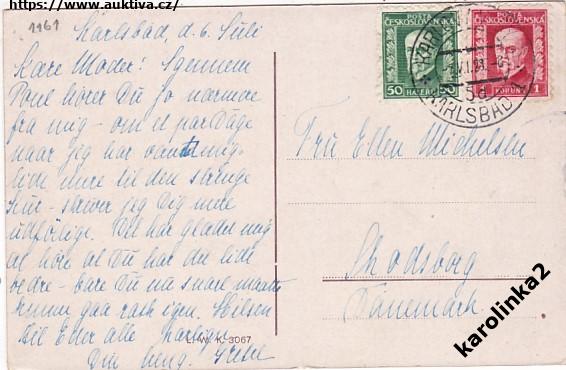 https://www.auktiva.cz/
1161
Karlsbad, d. 6. Juli
Kære Moder! Igennem
Poul hører Du jo nærmere
fra mig - om et par Dage
naar jeg har vænt mig
lidt mere til den strenge
Kur - skriver jeg Dig mere
udförlig. Det har glædet mig
at höre at Du har det lidt
bedre - bare Du nu snart maatte
kunne gaa rask igen. Hilsen
til Eder alle kærligst
Din heng.
POSTA
ČESKOSLOVENSKÁ
50 HALÉŘŮ 50
POSTA
ČESKOSLOVENSKÁ
KORUNA 1
KARLSBAD
5d
Fru Ellen Michelsen
Skodsborg
Dänemark
L. W. K. 3067
karolinka2